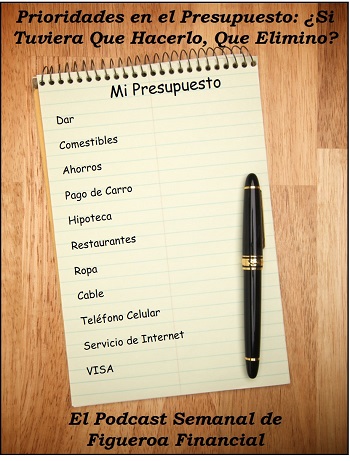 Prioridades en el Presupuesto: ¿Si
Tuviera Que Hacerlo, Que Elimino?
Mi Presupuesto
Dar
Comestibles
Ahorros
Pago de Carro
Hipoteca
Restaurantes
Ropa
Cable
Teléfono Celular
Servicio de Internet
VISA
El Podcast Semanal de
Figueroa Financial